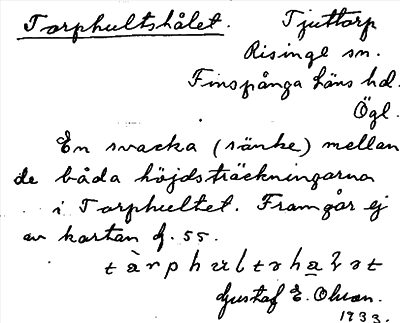 Torphultshålet. Tjuttorp
Risinge sn.
Finspånga läns hd.
Ögl.
En svacka (sänke) mellan
de båda höjdsträckningarna
i Torphultet. Framgår ej
av kartan f. 55.
Gustaf E. Olsson.
1933.